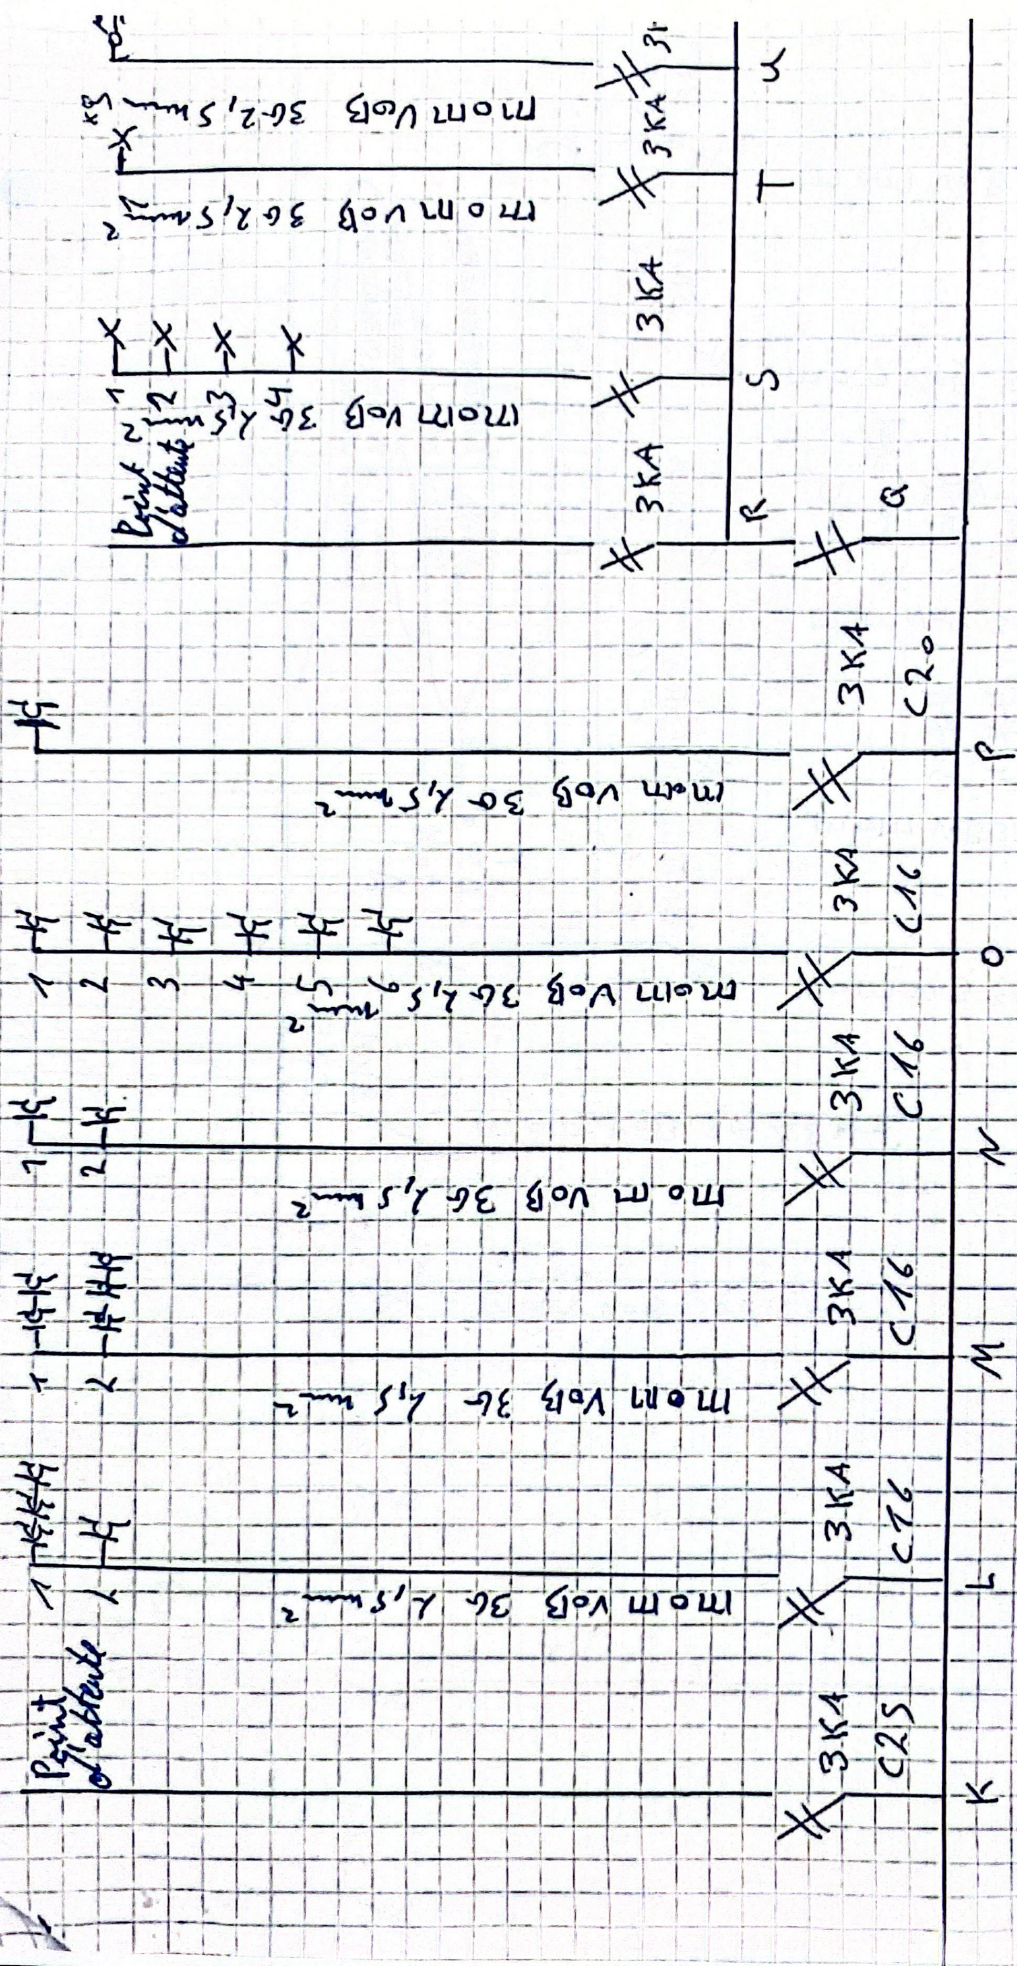 Point
d'attente
3KA
C25
K
1
2
mom VOB 3G 2,5 mm²
3KA
C16
L
1
2
mom VOB 3G 2,5 mm²
3KA
C16
M
1
2
mom VOB 3G 2,5 mm²
3KA
C16
N
1
2
3
4
5
6
mom VOB 3G 2,5
mm²
3KA
C16
O
mom VOB 3G 2,5 mm²
3KA
C20
P
Q
Point
d'attente
3KA
R
1
2
3
4
mom VOB 3G 2,5 mm²
3KA
S
mom VOB 3G 2,5 mm²
3KA
T
mom VOB 3G 2,5 mm
U